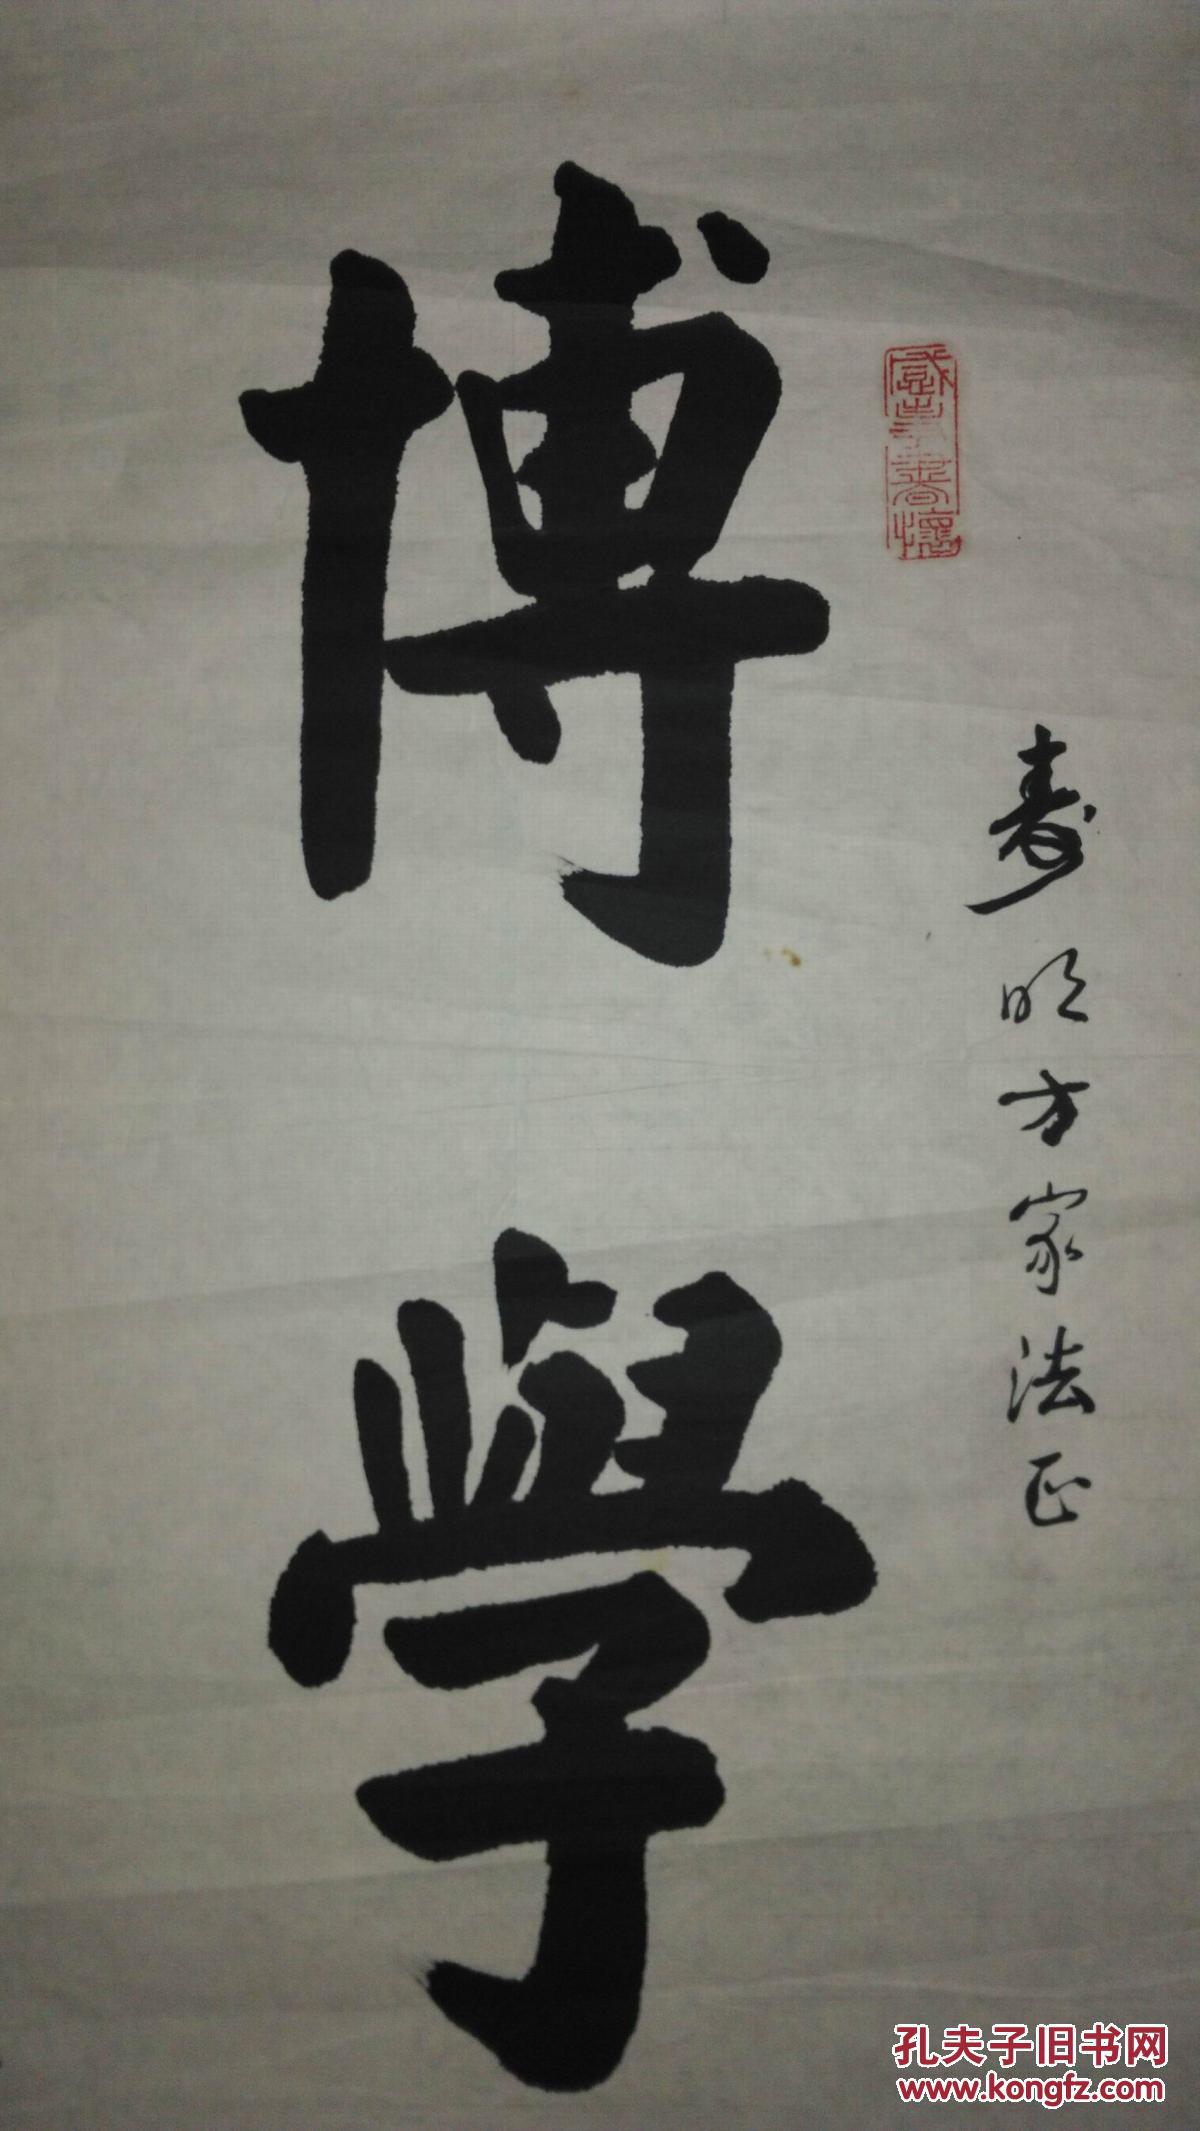 博學
壽明方家法正
孔夫子旧书网
www.kongfz.com